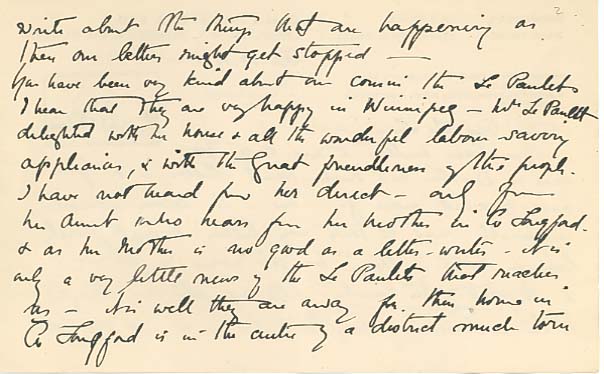 2
write about the things that are happening as
then our letters might get stopped —
You have been very kind about our cousins the Le Paulets
I hear that they are very happy in Winnipeg — Mrs Le Paulet
delighted with her house & all the wonderful labour-saving
appliances, & with the great friendliness of the people.
I have not heard from her direct — only from
her Aunt who hears from her mother in Co Longford.
& as her Mother is no good as a letter-writer — it is
only a very little news of the Le Paulets that reaches
us — it is well they are away for their home in
Co Longford is in the centre of a district much torn